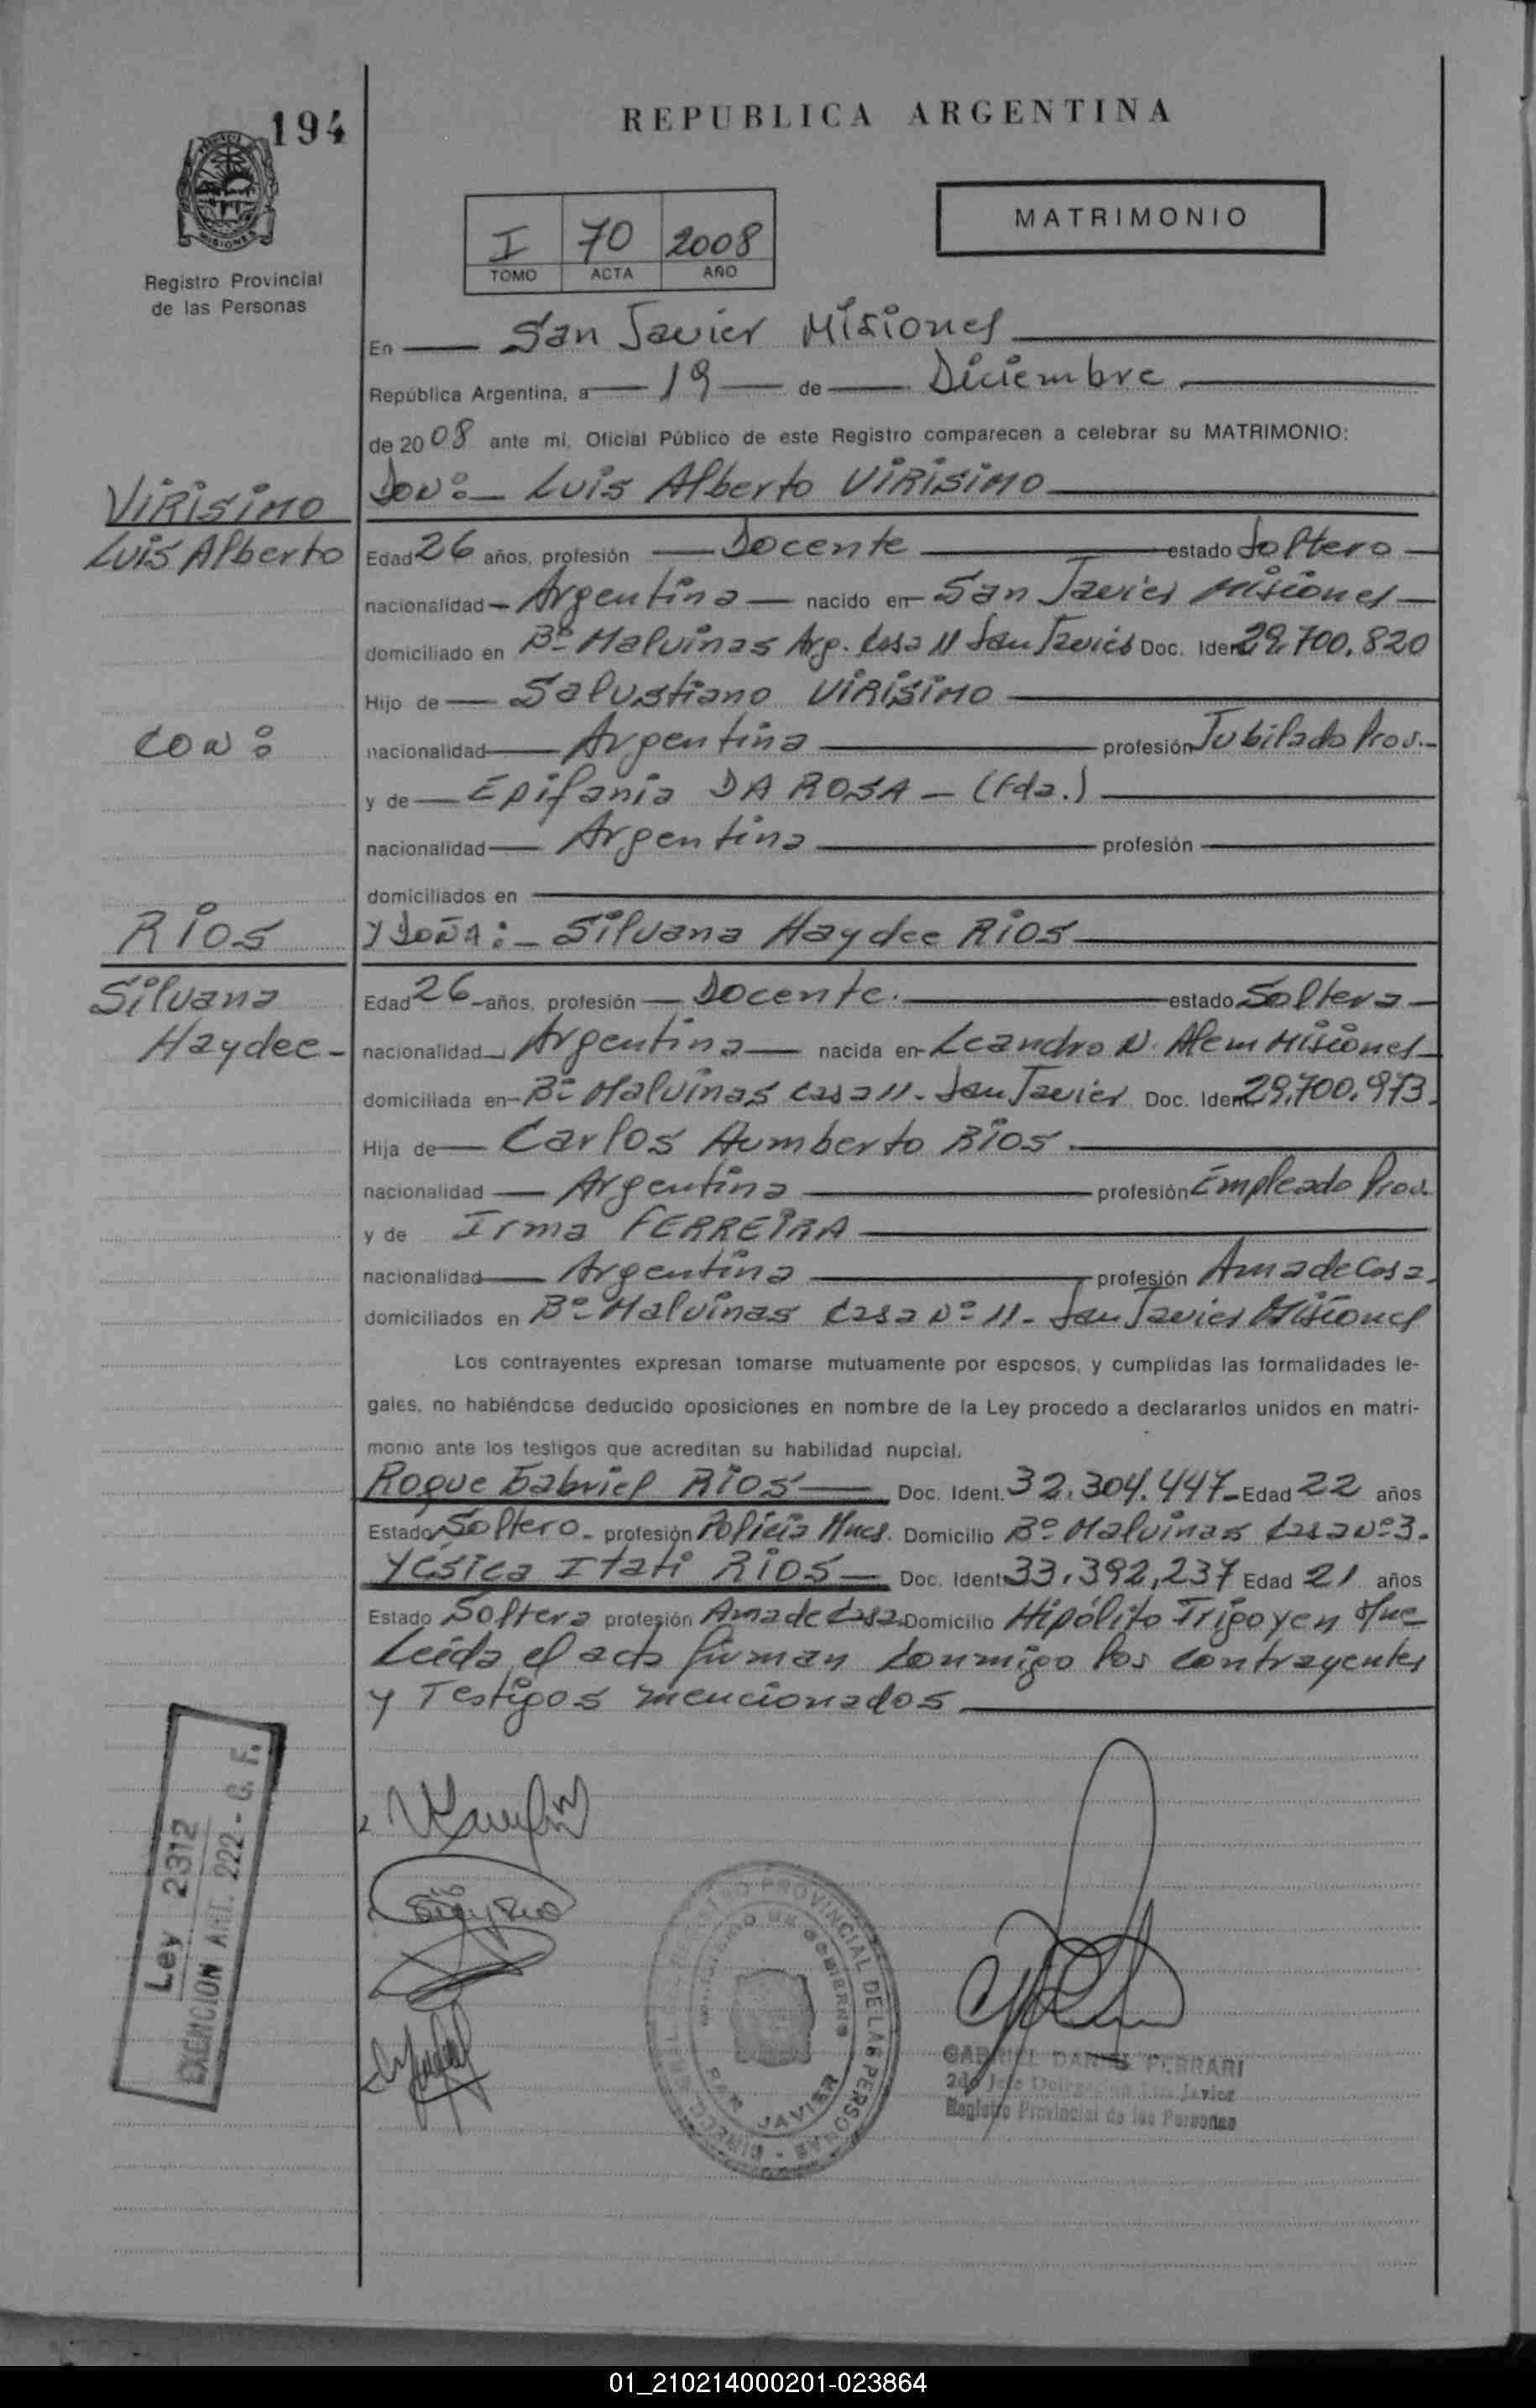 194
REPUBLICA ARGENTINA
MATRIMONIO
I 70 2008
TOMO ACTA AÑO
MISIONES
Registro Provincial
de las Personas
En San Javier Misiones
República Argentina, a 19 de Diciembre
de 2008 ante mí, Oficial Público de este Registro comparecen a celebrar su MATRIMONIO:
VIRISIMO
Luis Alberto
DON: Luis Alberto VIRISIMO
Edad 26 años, profesión Docente estado Soltero
nacionalidad Argentina nacido en San Javier Misiones
domiciliado en Bº Malvinas Arg. Casa 11 San Javier Doc. Ident 29.700.820
Hijo de Salustiano VIRISIMO
CON:
nacionalidad Argentina profesión Jubilado Prov.
y de Epifania DA ROSA - (Fda.)
nacionalidad Argentina profesión
domiciliados en
RIOS
Silvana
Haydee
Y DOÑA: Silvana Haydee RIOS
Edad 26 años, profesión Docente. estado Soltera
nacionalidad Argentina nacida en Leandro N. Alem Misiones
domiciliada en Bº Malvinas Casa 11. San Javier Doc. Ident 29.700.973.
Hija de Carlos Humberto RIOS
nacionalidad Argentina profesión Empleado Prov.
y de Irma FERREIRA
nacionalidad Argentina profesión Ama de Casa.
domiciliados en Bº Malvinas Casa Nº 11 - San Javier Misiones
Los contrayentes expresan tomarse mutuamente por esposos, y cumplidas las formalidades le-
gales, no habiéndose deducido oposiciones en nombre de la Ley procedo a declararlos unidos en matri-
monio ante los testigos que acreditan su habilidad nupcial.
Roque Gabriel RIOS Doc. Ident. 32.304.447 Edad 22 años
Estado Soltero. profesión Policia Mnes. Domicilio Bº Malvinas Casa Nº 3.
Yésica Itati RIOS Doc. Ident 33.392.237 Edad 21 años
Estado Soltera profesión Ama de Casa Domicilio Hipólito Irigoyen
Leída el acta firman conmigo los contrayentes
y Testigos mencionados
Ley 2312
EXENCION ART. 222 - C. F.
REGISTRO PROVINCIAL DE LAS PERSONAS
SAN JAVIER
GABRIEL DANIEL FERRARI
2do Jefe Delegación San Javier
Registro Provincial de las Personas
01_210214000201-023864